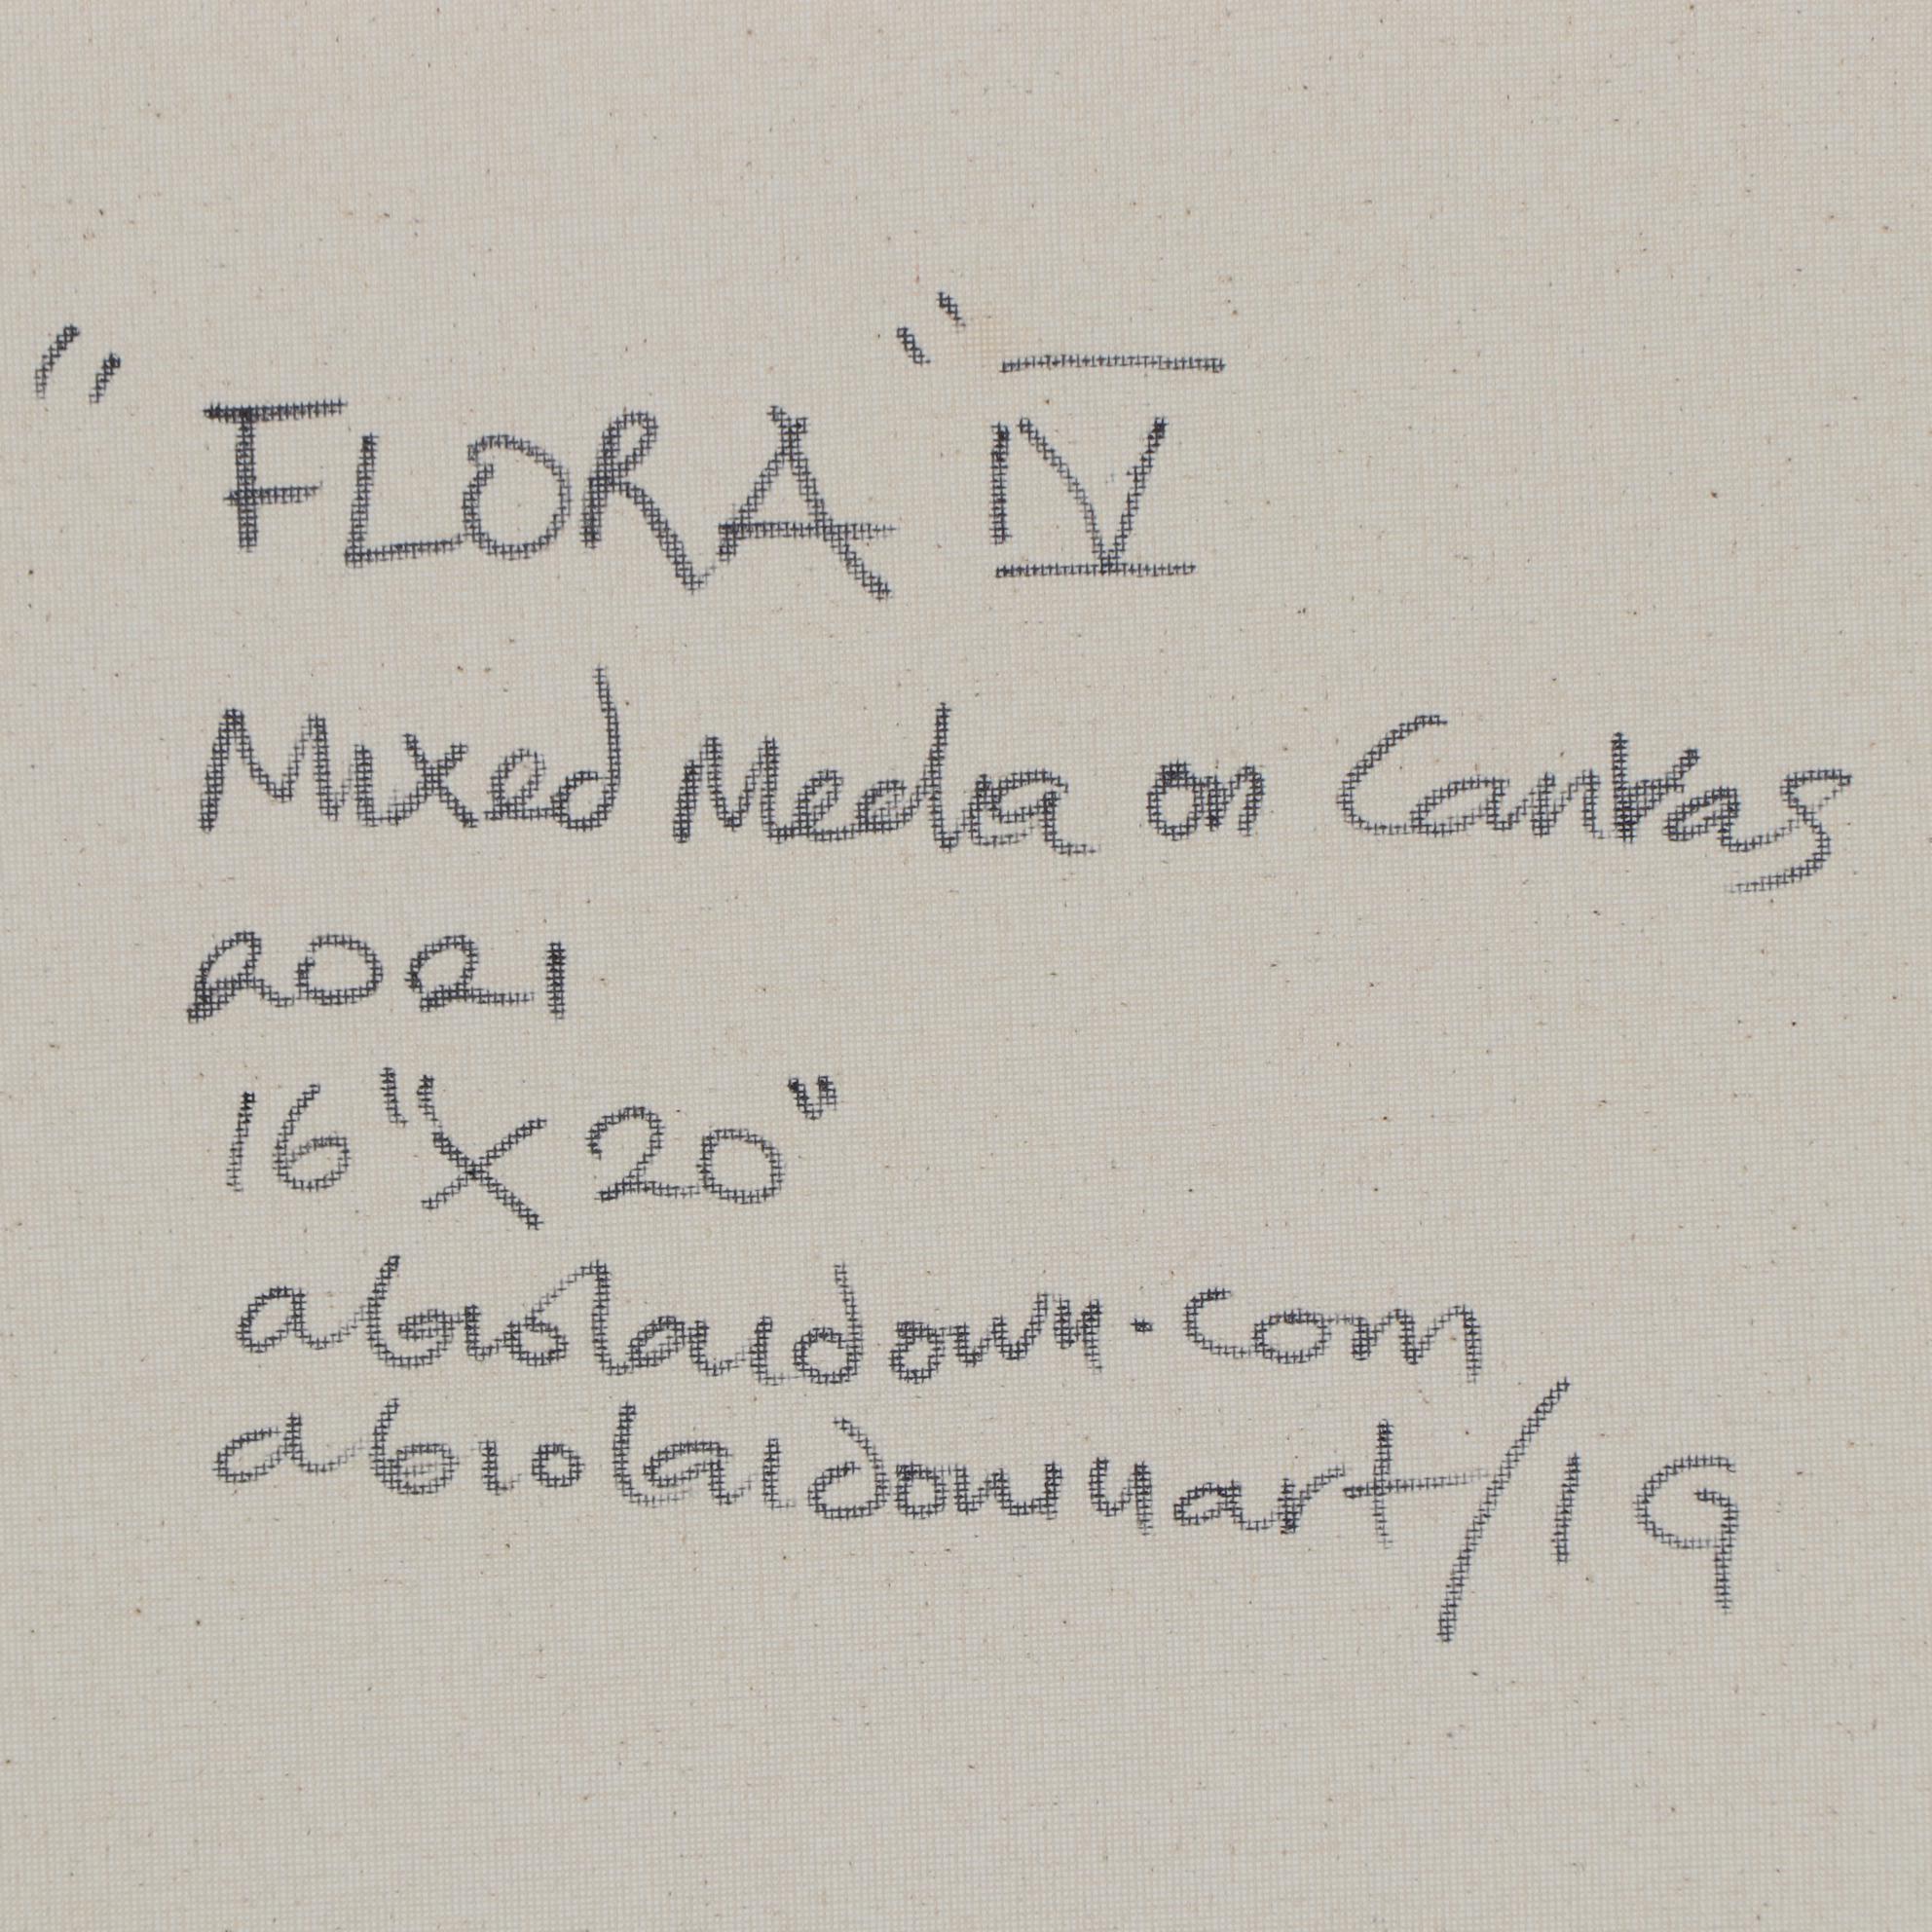 "FLORA" IV
Mixed Media on Canvas
2021
16"X 20"
abiolaidowu.com
abiolaidowuart/19